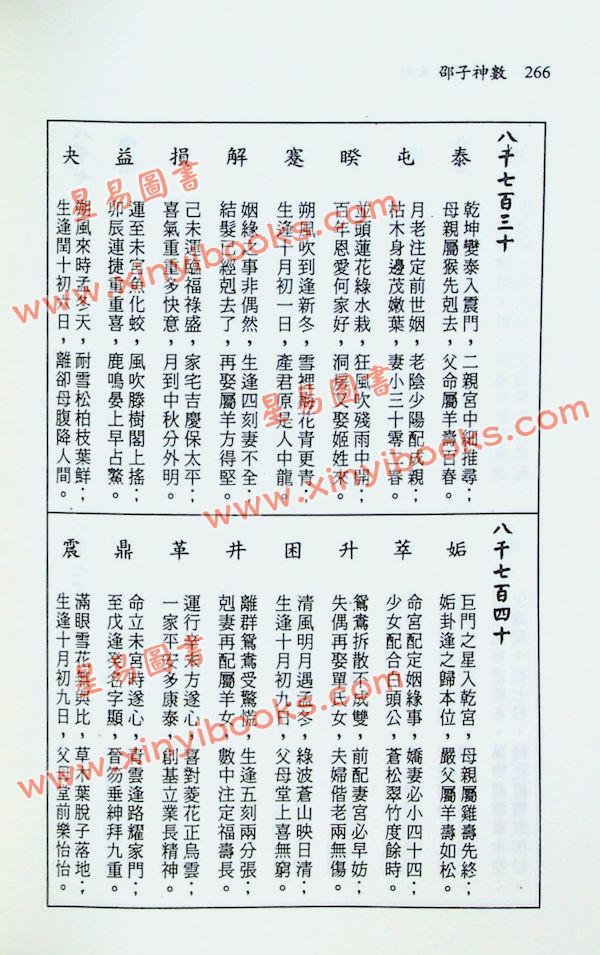 邵子神數 266
八千七百三十
泰
乾坤變泰入震門,二親宮中細推尋;
母親屬猴先剋去,父命屬羊壽百春。
屯
月老注定前世姻,老陰少陽配成親;
枯木身邊茂嫩葉,妻小三十零一春。
睽
並頭蓮花綠水栽,狂風吹殘雨中開;
百年恩愛何家好,洞房又娶姬姓來。
蹇
朔風吹到逢新冬,雪裡梅花青更青;
生逢十月初一日,產君原是人中龍。
解
姻緣之事非偶然,生逢四刻妻不全;
結髮已經剋去了,再娶屬羊方得堅。
損
己未運臨福祿盛,家宅吉慶保太平;
喜氣重重多快意,月到中秋分外明。
益
運至未宮魚化蛟,風吹滕樹閣上搖;
卯辰連捷重重喜,鹿鳴晏上早占鰲。
夬
朔風來時孟冬天,耐雪松柏枝葉鮮;
生逢閏十初六日,離卻母腹降人間。
八千七百四十
姤
巨門之星入乾宮,母親屬雞壽先終;
姤卦逢之歸本位,嚴父屬羊壽如松。
萃
命宮配定姻緣事,嬌妻必小四十四;
少女配合白頭公,蒼松翠竹度餘時。
升
鴛鴦拆散不成雙,前配妻宮必早妨;
失偶再娶單氏女,夫婦偕老兩無傷。
困
清風明月遇孟冬,綠波蒼山映日清;
生逢十月初九日,父母堂上喜無窮。
井
離群鴛鴦受驚慌,生逢五刻兩分張;
剋妻再配屬羊女,數中注定福壽長。
革
運行辛未方遂心,喜對菱花正烏雲;
一家平安多康泰,創基立業長精神。
鼎
命立未宮時遂心,青雲逢路耀家門;
至戊逢癸名字顯,晉笏垂紳拜九重。
震
滿眼雪花無與比,草木葉脫子落地;
生逢十月初九日,父母堂前樂怡怡。
星易圖書
www.xinyibooks.com
星易圖書
www.xinyibooks.com
星易圖書
www.xinyibooks.com
星易圖書
www.xinyibooks.com